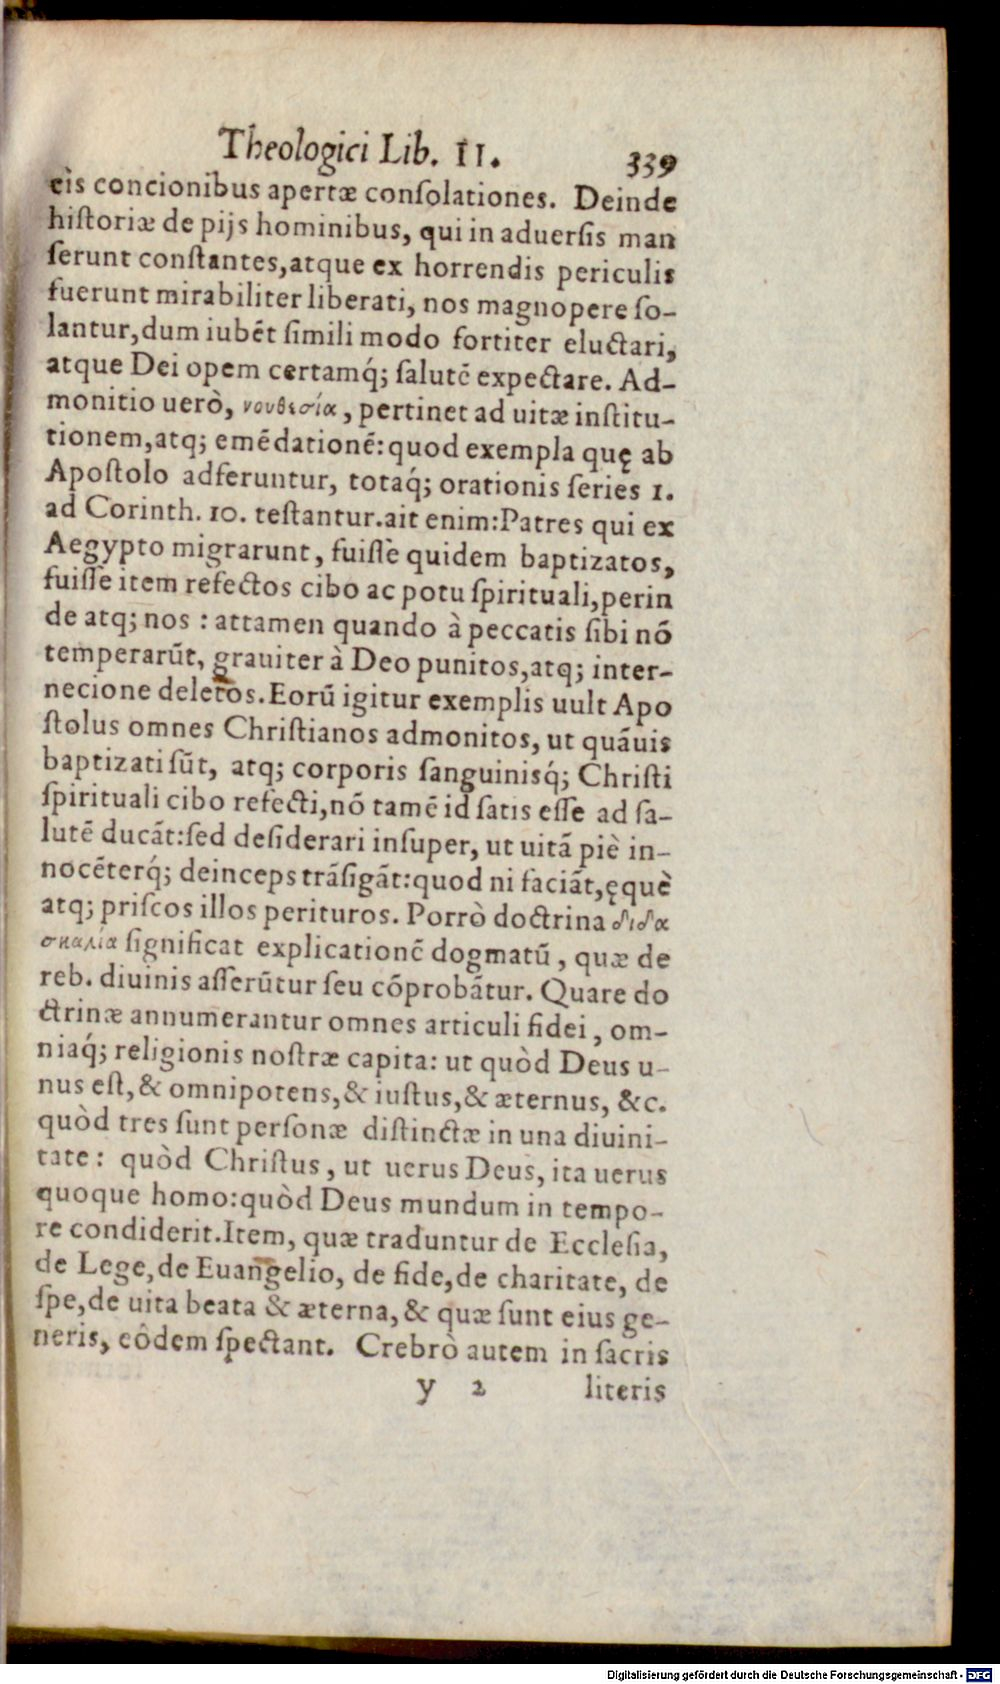 Theologici Lib. II. 339
eis concionibus apertæ conſolationes. Deinde
hiſtoriæ de pijs hominibus, qui in aduerſis man
ſerunt conſtantes, atque ex horrendis periculis
fuerunt mirabiliter liberati, nos magnopere ſo-
lantur, dum iubẽt ſimili modo fortiter eluctari,
atque Dei opem certamq́; ſalutẽ expectare. Ad-
monitio uerò, νουθεσία, pertinet ad uitæ inſtitu-
tionem, atq; emẽdationẽ: quod exempla quę ab
Apoſtolo adferuntur, totaq́; orationis ſeries 1.
ad Corinth. 10. teſtantur. ait enim: Patres qui ex
Aegypto migrarunt, fuiſſè quidem baptizatos,
fuiſſe item refectos cibo ac potu ſpirituali, perin
de atq; nos: attamen quando à peccatis ſibi nõ
temperarũt, grauiter à Deo punitos, atq; inter-
necione deletos. Eorũ igitur exemplis uult Apo
ſtolus omnes Chriſtianos admonitos, ut quãuis
baptizati ſũt, atq; corporis ſanguinisq́; Chriſti
ſpirituali cibo refecti, nõ tamẽ id ſatis eſſe ad ſa-
lutẽ ducãt: ſed deſiderari inſuper, ut uitã piè in-
nocẽterq́; deinceps trãſigãt: quod ni faciãt, ęquè
atq; priſcos illos perituros. Porrò doctrina διδα
σκαλία ſignificat explicationẽ dogmatũ, quæ de
reb. diuinis aſſerũtur ſeu cõprobãtur. Quare do
ctrinæ annumerantur omnes articuli fidei, om-
niaq́; religionis noſtræ capita: ut quòd Deus u-
nus eſt, & omnipotens, & iuſtus, & æternus, &c.
quòd tres ſunt perſonæ diſtinctæ in una diuini-
tate: quòd Chriſtus, ut uerus Deus, ita uerus
quoque homo: quòd Deus mundum in tempo-
re condiderit. Item, quæ traduntur de Eccleſia,
de Lege, de Euangelio, de fide, de charitate, de
ſpe, de uita beata & æterna, & quæ ſunt eius ge-
neris, eôdem ſpectant. Crebrò autem in ſacris
y 2 literis
Digitalisierung gefördert durch die Deutsche Forschungsgemeinschaft - DFG